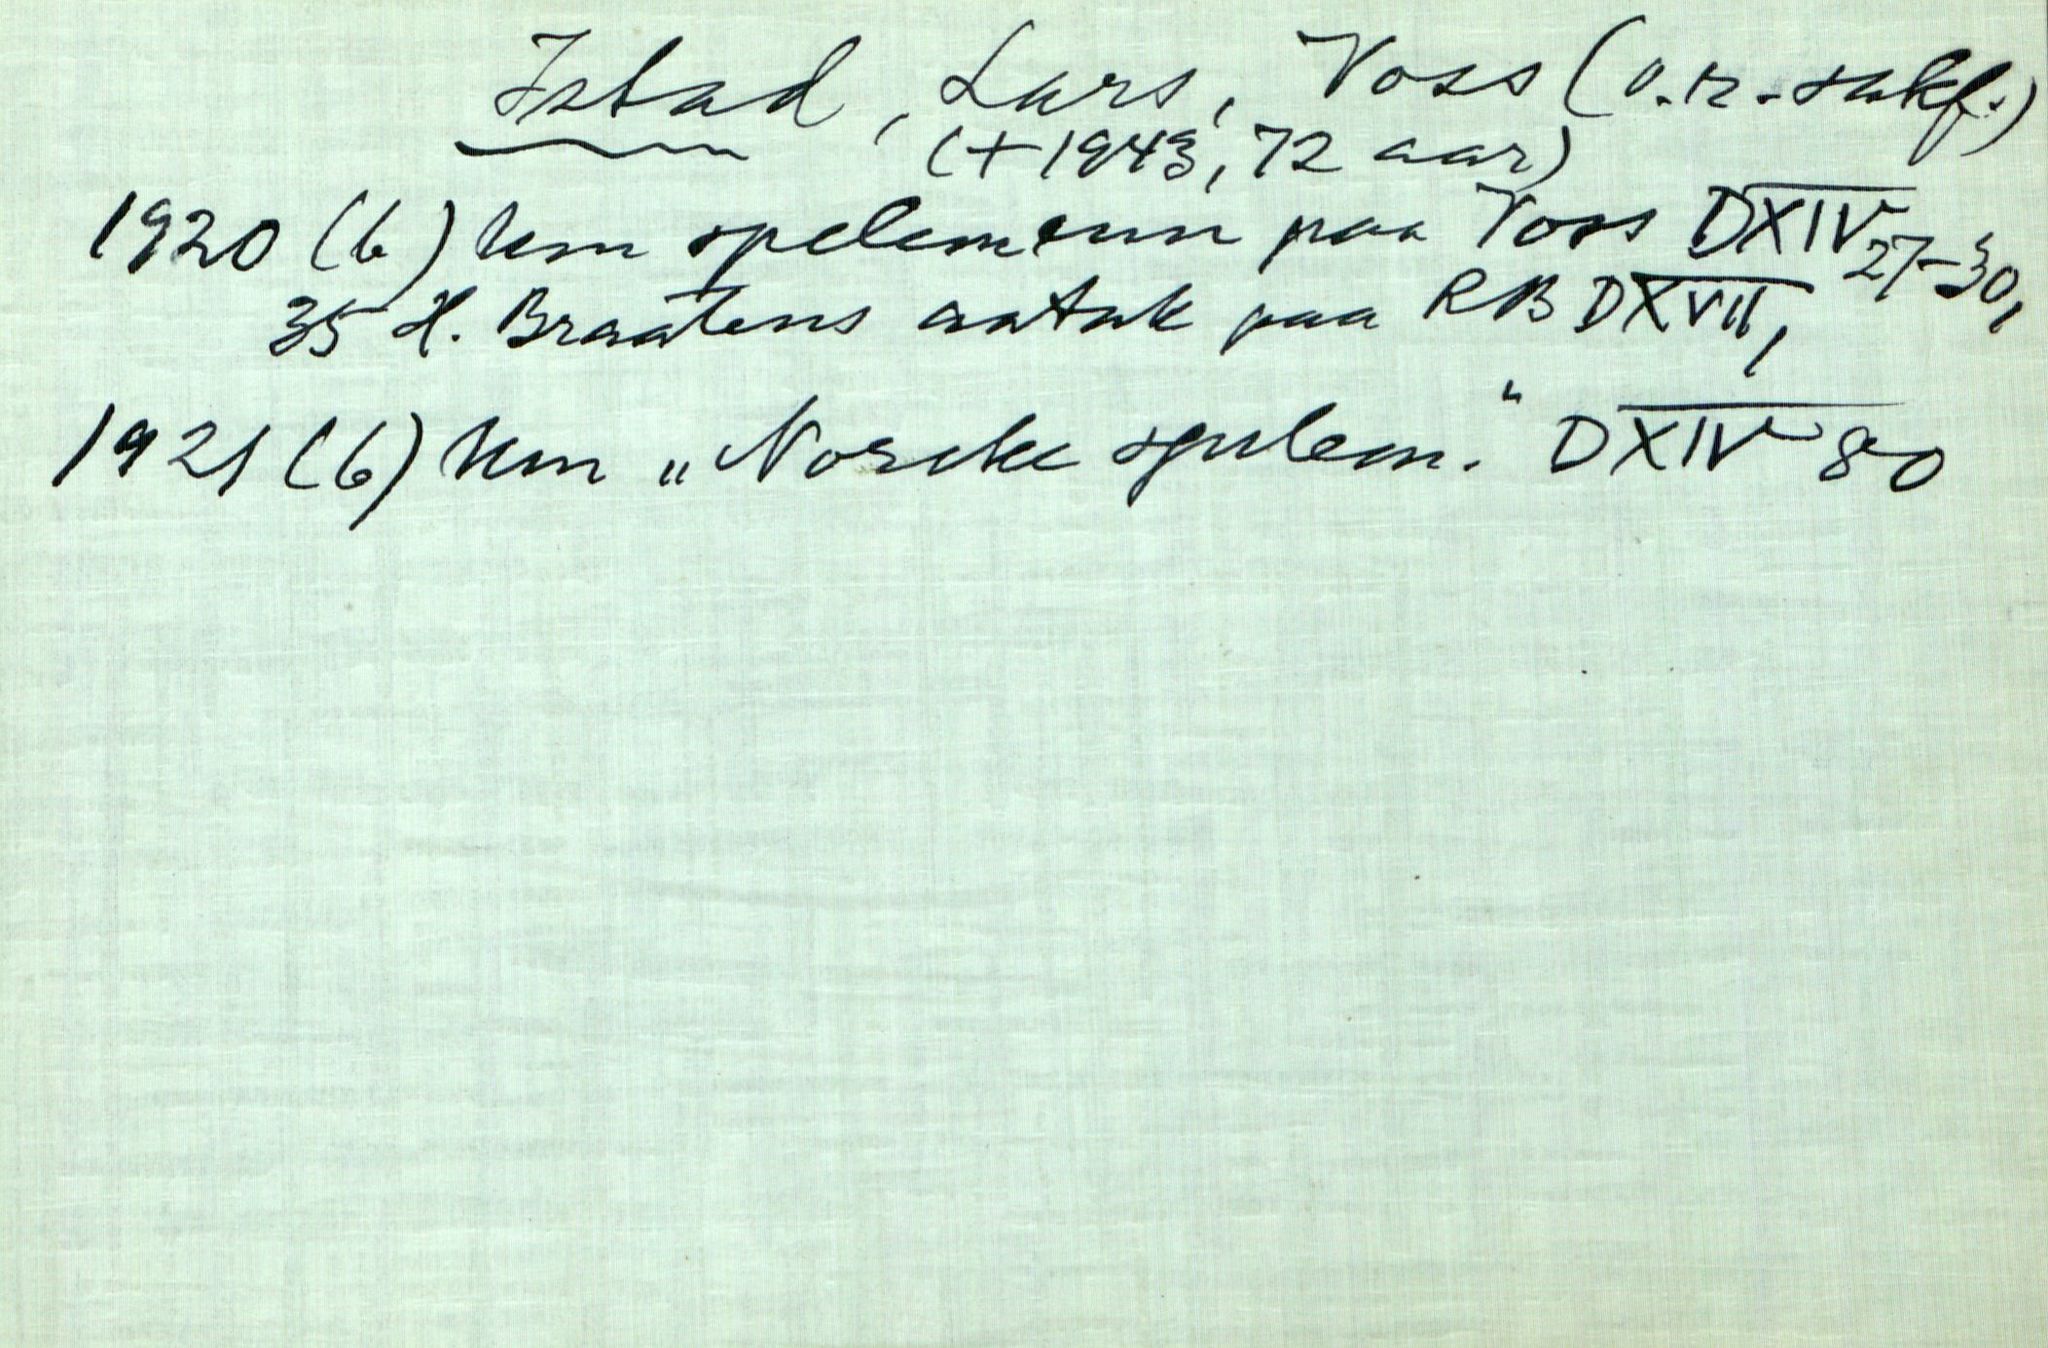 Istad, Lars, Voss (o.r.sakf.)
(+1943, 72 aar)
1920 (b) um spelemenn paa Voss DXIV 27-30,
35 H. Braatens aatak paa RB DXVII,
1921 (b) um „Norske spelem." DXIV 80